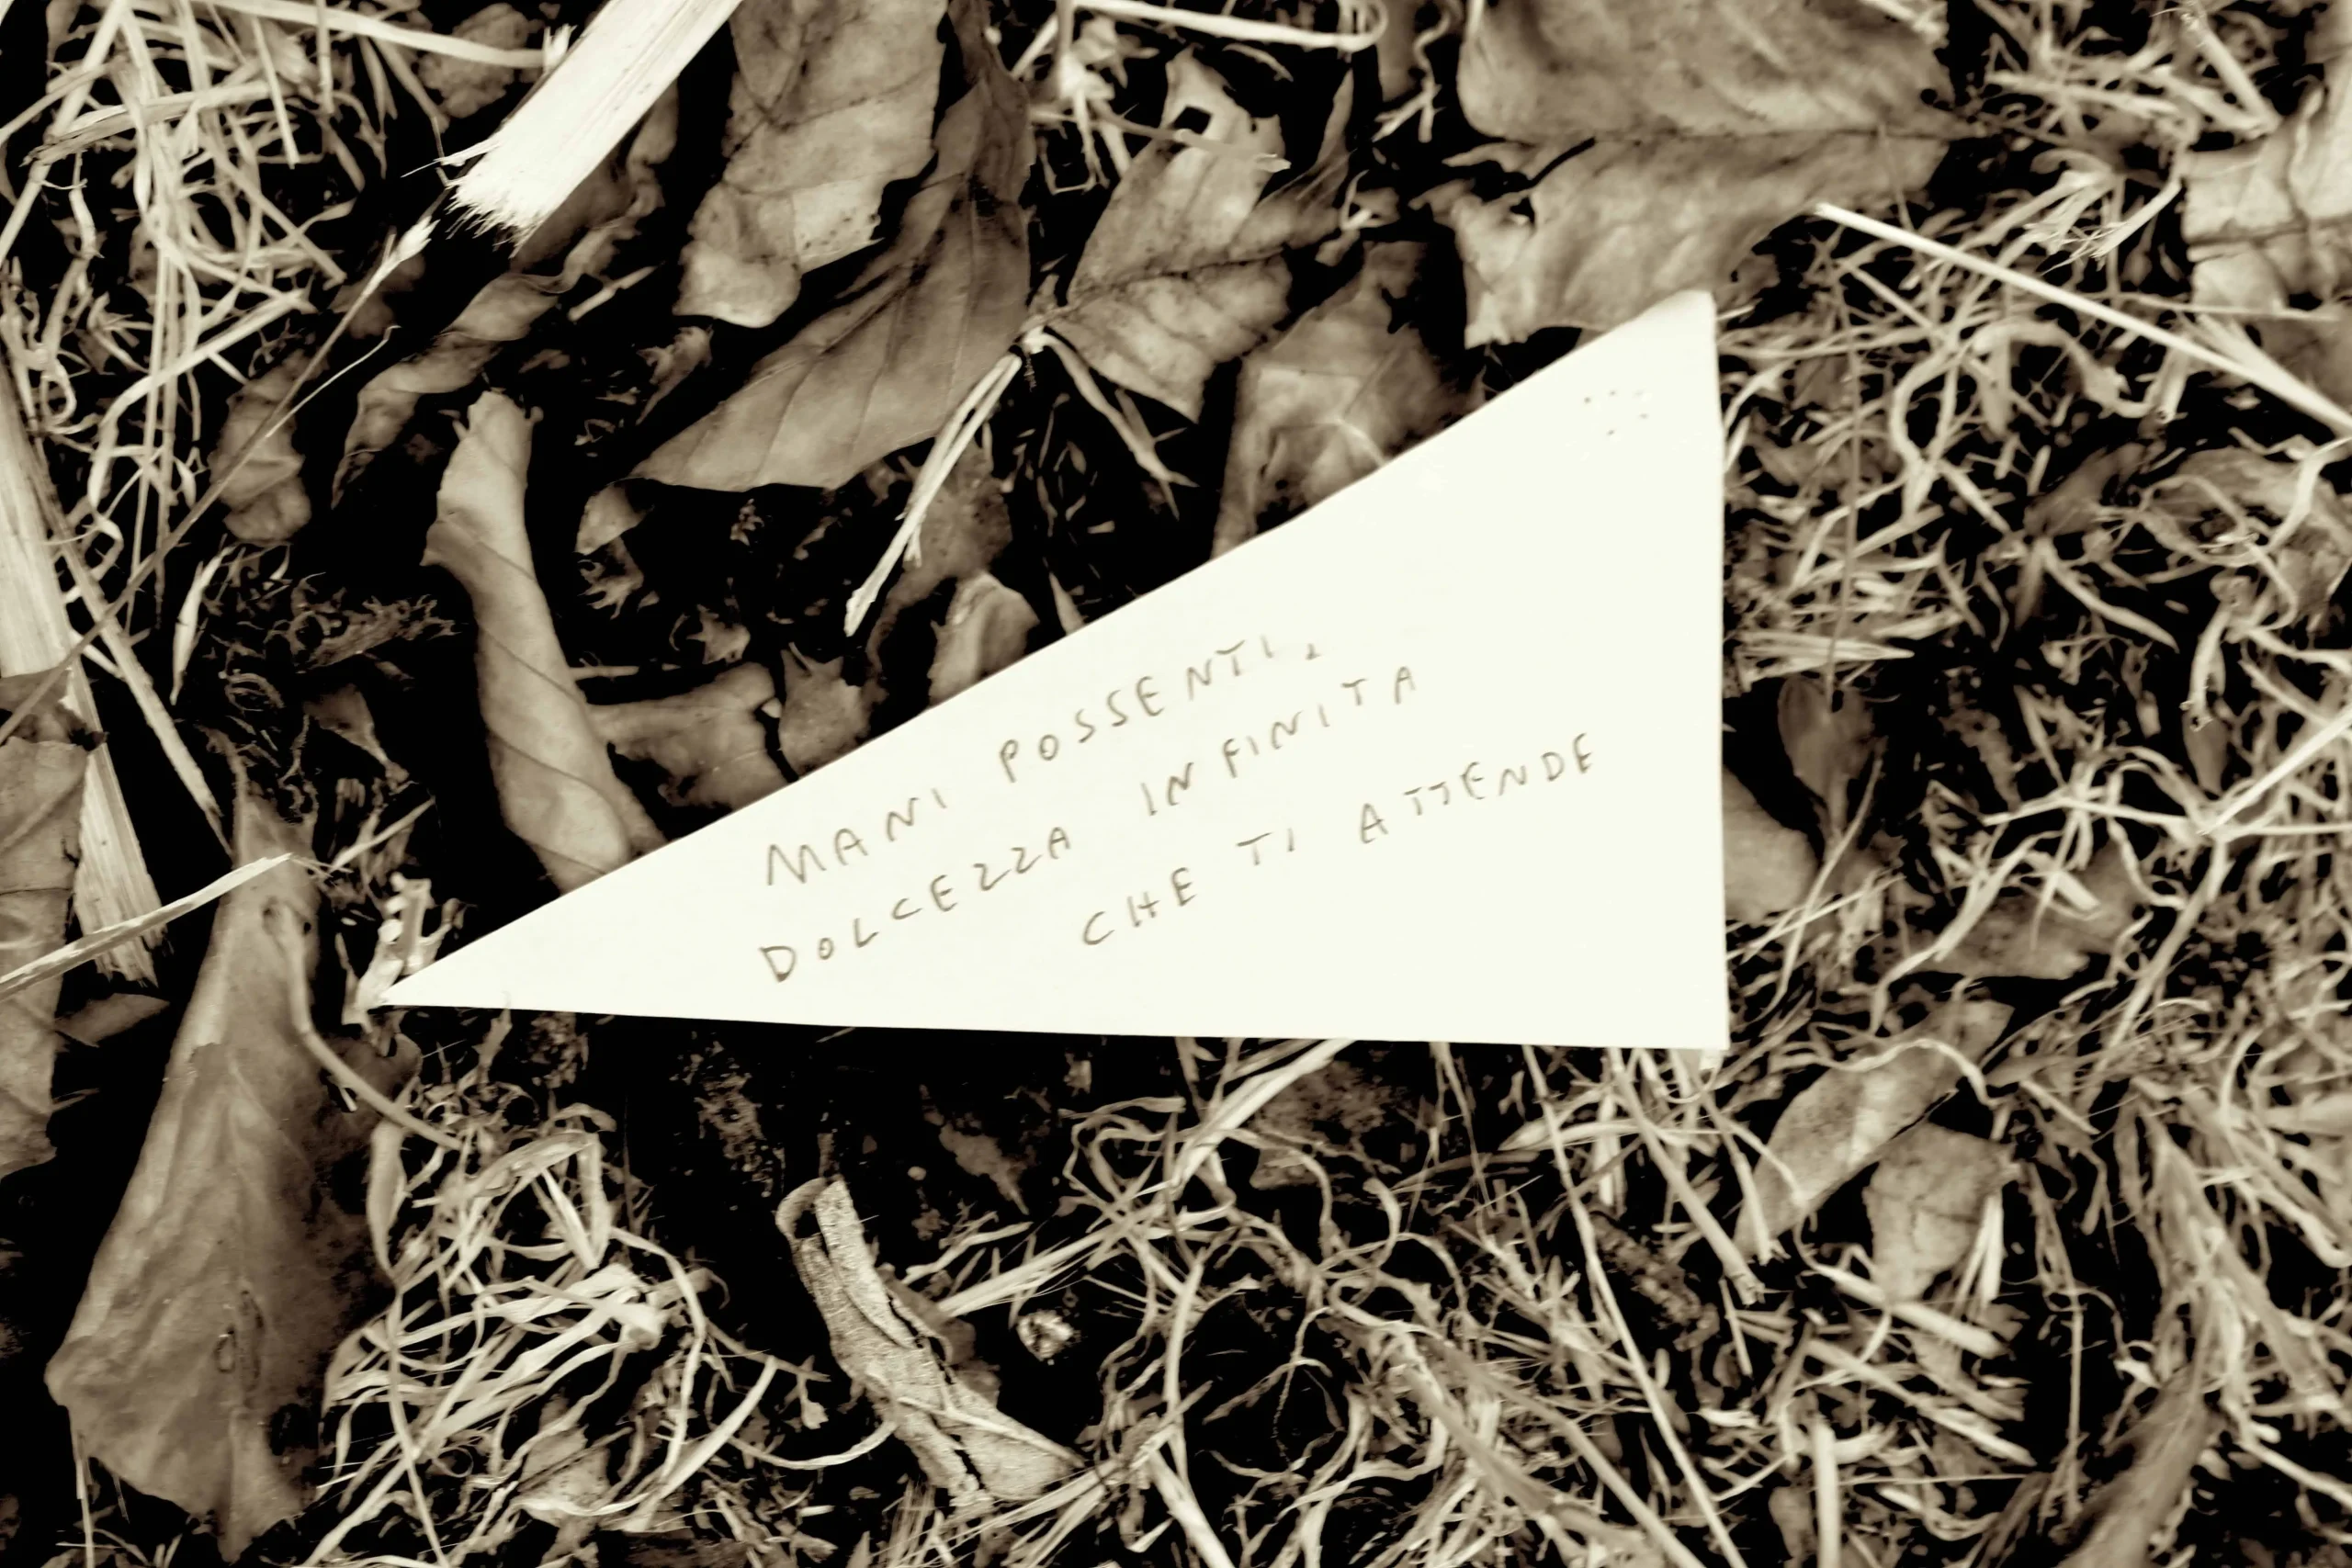 MANI POSSENTI,
DOLCEZZA INFINITA
CHE TI ATTENDE